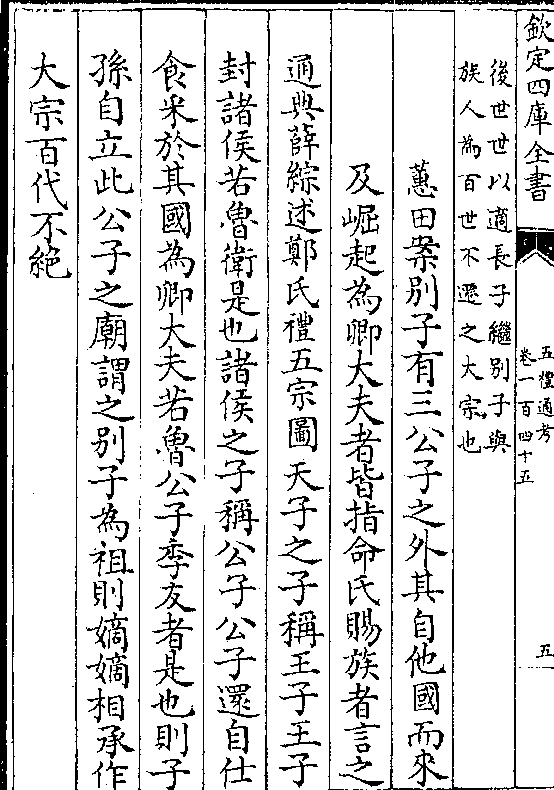 欽定四庫全書
五禮通考
卷一百四十五
五
後世世以適長子繼別子與
族人為百世不遷之大宗也
蕙田案別子有三公子之外其自他國而來
及崛起為卿大夫者皆指命氏賜族者言之
通典薛綜述鄭氏禮五宗圖天子之子稱王子王子
封諸侯若魯衛是也諸侯之子稱公子公子還自仕
食采於其國為卿大夫若魯公子季友者是也則子
孫自立此公子之廟謂之別子為祖則嫡嫡相承作
大宗百代不絕